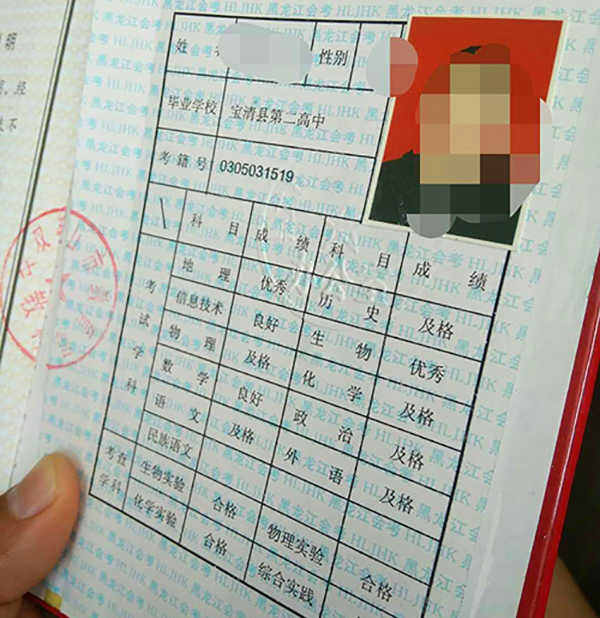 姓
性别
毕业学校 宝清县第二高中
考籍号 0305031519
科目 成绩 科目 成绩
考试学科
地理 优秀 历史 及格
信息技术 良好 生物 优秀
物理 及格 化学 及格
数学 良好 政治 及格
语文 及格 外语 及格
民族语文
考查学科
生物实验 合格 物理实验 合格
化学实验 合格 综合实践
黑龙江会考 HLJHK